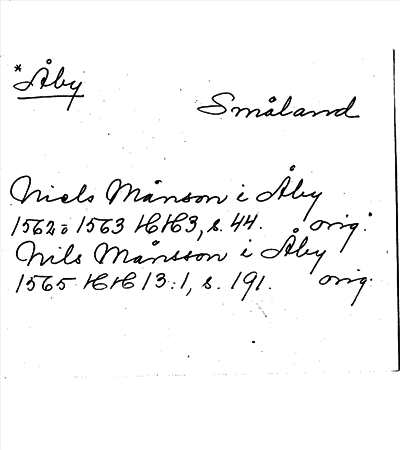 *Åby
Småland
Niels Månson i Åby
1562ö 1563 HH3, s. 44. orig.
Nils Månsson i Åby
1565 HH 13:1, s. 191. orig.